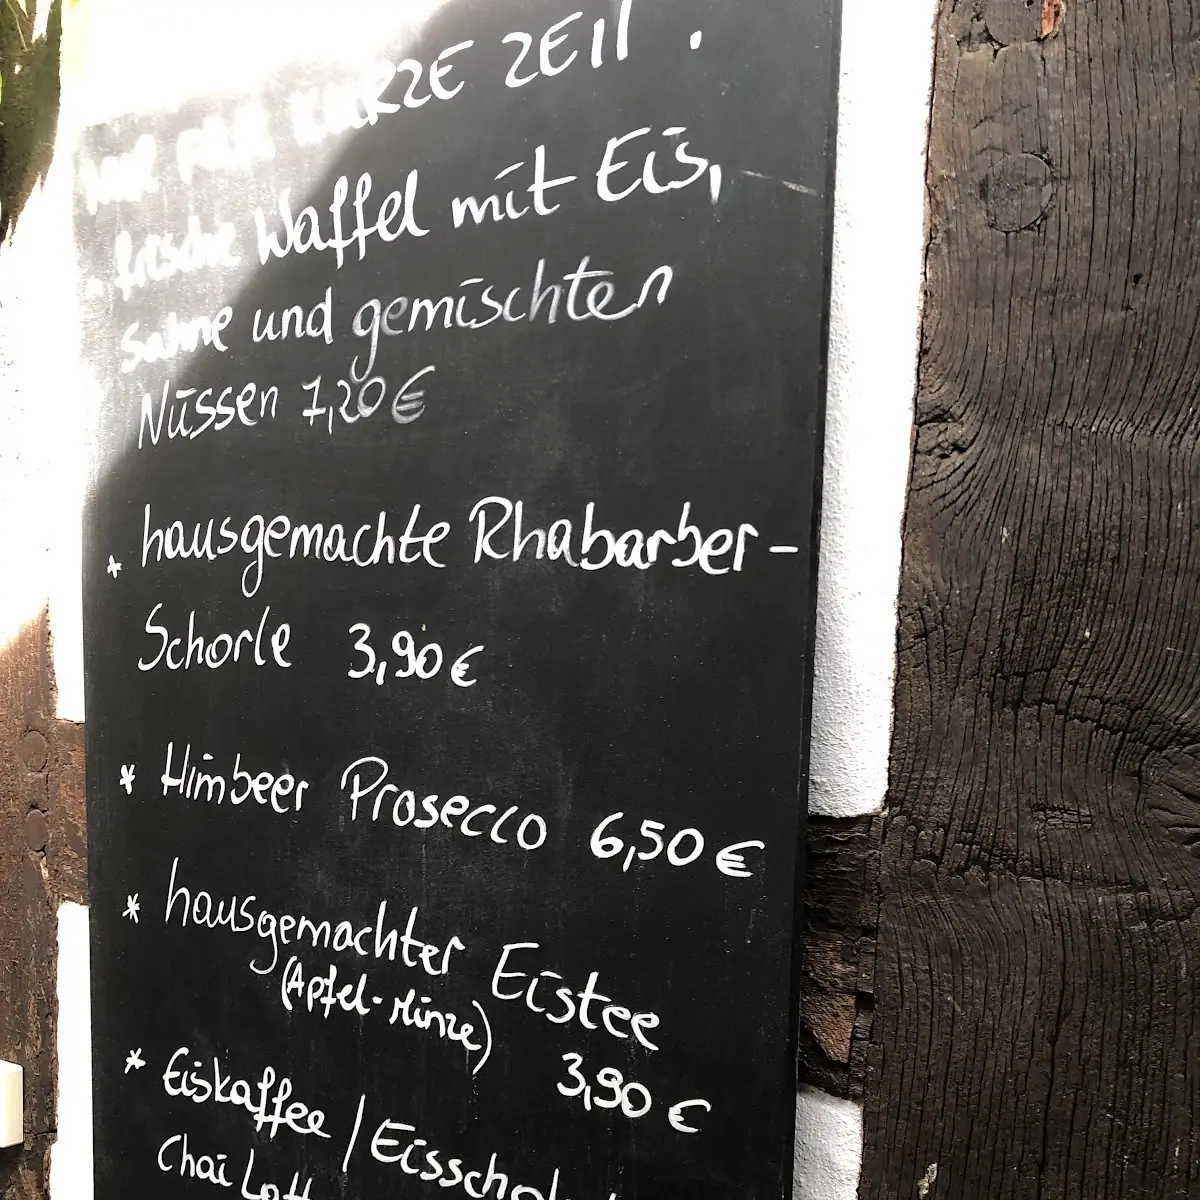 NUR FÜR KURZE ZEIT.
frische Waffel mit Eis,
Sahne und gemischten
Nüssen 7,20 €
* hausgemachte Rhabarber-
Schorle 3,90 €
* Himbeer Prosecco 6,50 €
* hausgemachter Eistee
(Apfel-Minze)
3,90 €
* Eiskaffee /
Chai